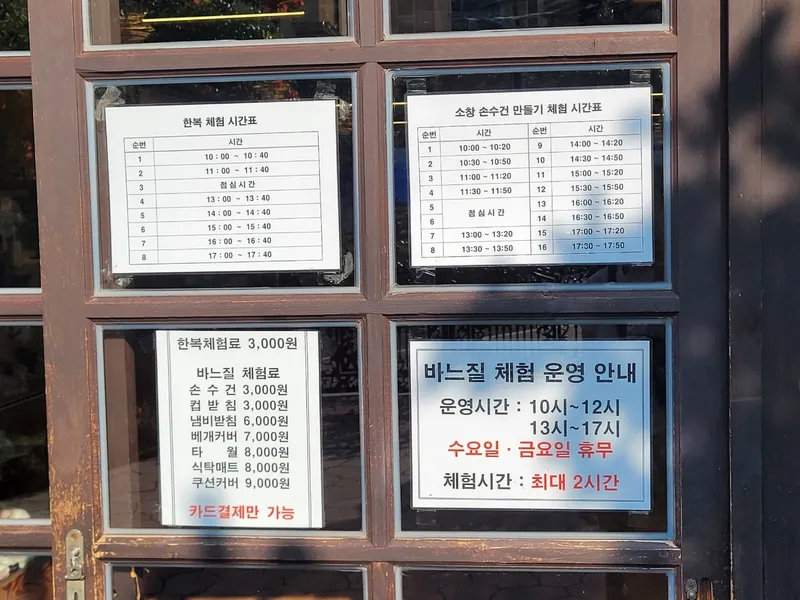 한복 체험 시간표
순번 시간
1 10:00 ~ 10:40
2 11:00 ~ 11:40
3 점심시간
4 13:00 ~ 13:40
5 14:00 ~ 14:40
6 15:00 ~ 15:40
7 16:00 ~ 16:40
8 17:00 ~ 17:40
소창 손수건 만들기 체험 시간표
순번 시간 순번 시간
1 10:00 ~ 10:20 9 14:00 ~ 14:20
2 10:30 ~ 10:50 10 14:30 ~ 14:50
3 11:00 ~ 11:20 11 15:00 ~ 15:20
4 11:30 ~ 11:50 12 15:30 ~ 15:50
5 점심시간 13 16:00 ~ 16:20
6 14 16:30 ~ 16:50
7 13:00 ~ 13:20 15 17:00 ~ 17:20
8 13:30 ~ 13:50 16 17:30 ~ 17:50
한복체험료 3,000원
바느질 체험료
손수건 3,000원
컵받침 3,000원
냄비받침 6,000원
베개커버 7,000원
타월 8,000원
식탁매트 8,000원
쿠션커버 9,000원
카드결제만 가능
바느질 체험 운영 안내
운영시간 : 10시~12시
13시~17시
수요일 · 금요일 휴무
체험시간 : 최대 2시간